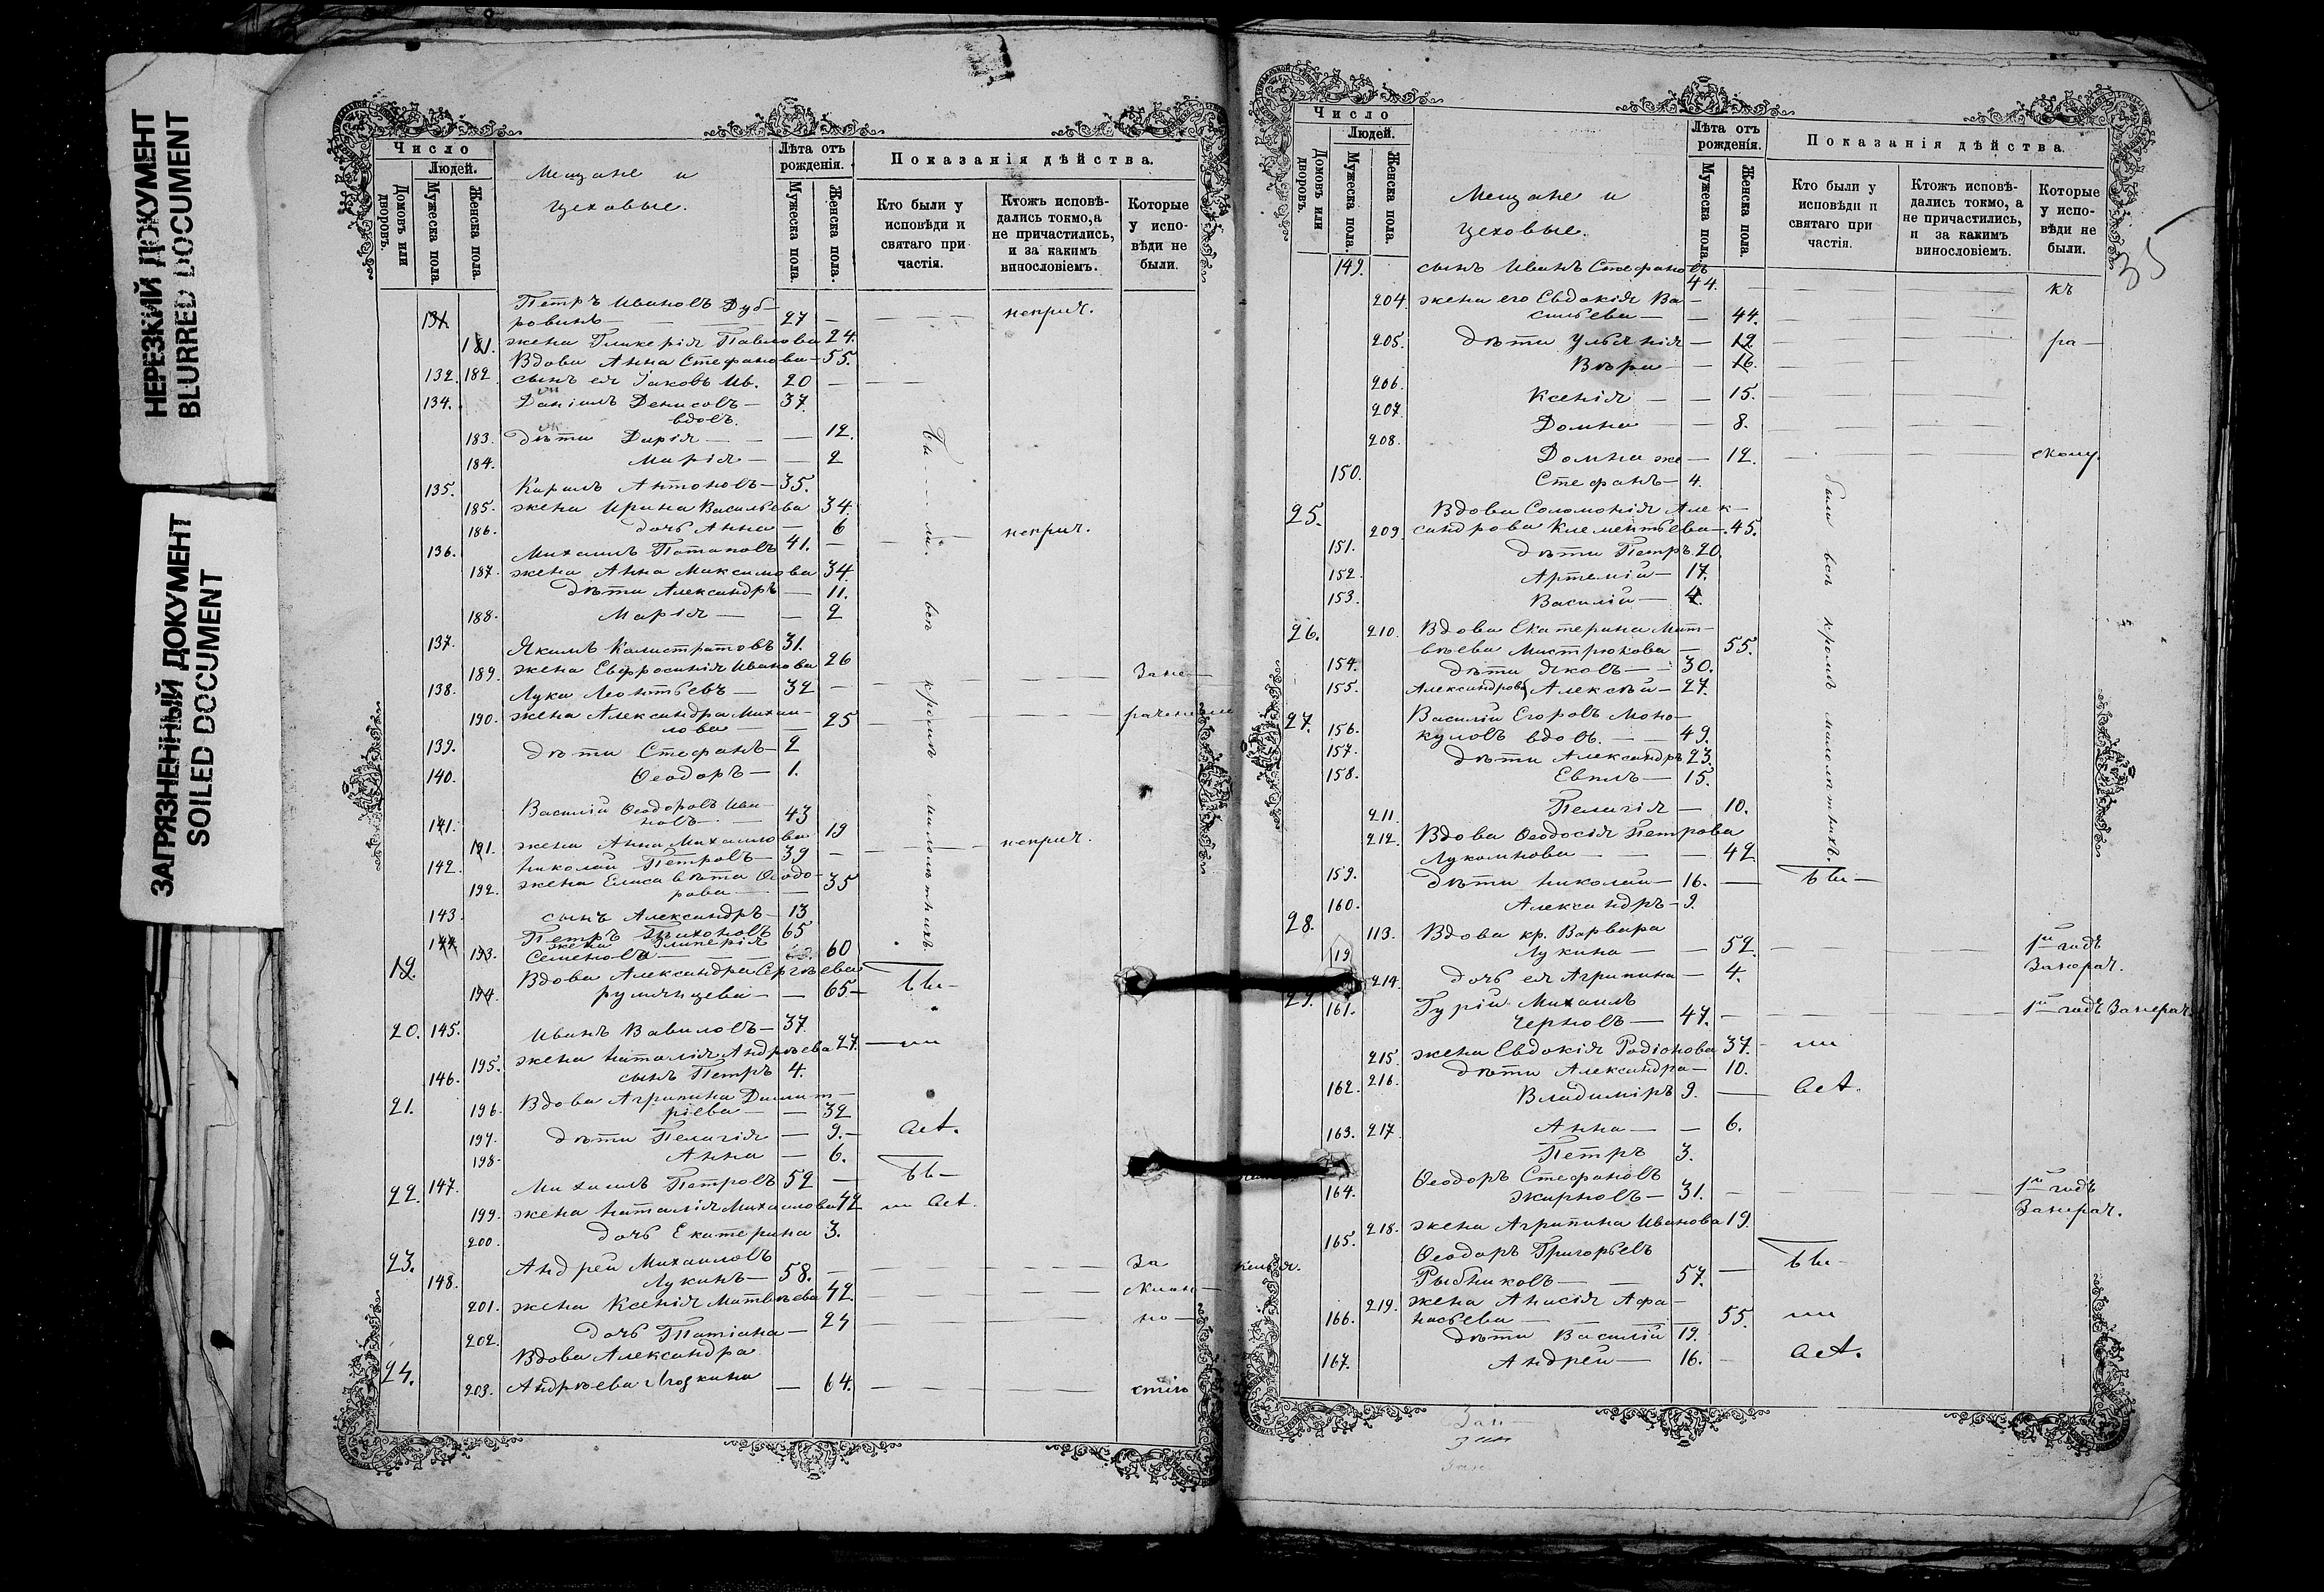 НЕРЕЗКИЙ ДОКУМЕНТ
BLURRED DOCUMENT
ЗАГРЯЗНЕННЫЙ ДОКУМЕНТ
SOILED DOCUMENT
Число
Людей.
Домовъ или дворовъ.
Мужеска пола.
Женска пола.
Мещане и
цеховые.
Лѣта отъ рожденія.
Мужеска пола.
Женска пола.
Показанія дѣйства.
Кто были у исповѣди и святаго при частія.
Ктожъ исповѣдались токмо, а не причастились, и за какимъ винословіемъ.
Которые у исповѣди не были.
Петръ Ивановъ Дуб-
131. ровинъ — 27 — неприч.
181. жена Гликерія Павлова 24.
Вдова Анна Стефанова — 55.
132. 182. сынъ ея Іаковъ Ив. 20 —
134. Даніилъ Денисовъ — 37.
вдовъ.
183. дѣти Дарія — 12.
184. Марія — 2
135. Кирилъ Антоновъ — 35.
185. жена Ирина Васильева 34.
186. дочь Анна — 6
136. Михаилъ Потаповъ 41. — неприч.
187. жена Анна Максимова 34.
дѣти Александръ — 11.
188. Марія — 2
137. Якимъ Калистратовъ 31.
189. жена Евфросинія Иванова 26
138. Лука Леонтьевъ — 32 — Зане-
190. жена Александра Михаи-
лова — 25
139. дѣти Стефанъ — 2
140. Ѳеодоръ — 1.
Василій Ѳеодоровъ Ива-
141. новъ — 43
191. жена Анна Михаилова 19
142. Николай Петровъ — 39 — неприч.
192. жена Елисавѣта Ѳеодо-
рова — 35
143. сынъ Александръ — 13
144. Петръ Тихоновъ 65
жена Гликерія
193. Семенова — 60
19. Вдова Александра Сергѣева
194. румянцева — 65 —
20. 145. Иванъ Вавиловъ — 37.
195. жена Наталія Андрѣева 27.
146. сынъ Петръ 4.
21. 196. Вдова Агрипина Димит-
ріева — 32
197. дѣти Пелагія — 9.
198. Анна — 6.
22. 147. Михаилъ Петровъ 52 —
199. жена Наталія Михаилова 42
200. дочь Екатерина 3.
23. Андрей Михаиловъ
148. Лукинъ — 58. — За
201. жена Ксенія Матвѣева 42
202. дочь Татіана — 24 — но —
24. Вдова Александра
203. Андрѣева Ягодкина — 64. — стію
Бы - - - - ли всѣ кромѣ малолѣтнихъ.
35
Число
Людей.
Домовъ или дворовъ.
Мужеска пола.
Женска пола.
Мещане и
цеховые.
Лѣта отъ рожденія.
Мужеска пола.
Женска пола.
Показанія дѣйства.
Кто были у исповѣди и святаго при частія.
Ктожъ исповѣдались токмо, а не причастились, и за какимъ винословіемъ.
Которые у исповѣди не были.
149. сынъ Иванъ Стефановъ
44. — къ
204. жена его Евдокія Ва-
сильева — 44.
205. дѣти Ульянія — 19. — ра —
Вѣра — 16.
206. Ксенія — 15.
207. Домна — 8.
208. Домна же — 12. — скому.
150. Стефанъ — 4.
25. Вдова Соломонія Алек-
209. сандрова Клементьева — 45.
151. дѣти Петръ 20.
152. Артемій — 17.
153. Василій — 4.
26. 210. Вдова Екатерина Мат-
вѣева Мистрюкова — 55.
154. дѣти Яковъ — 30.
155. Александровы Алексѣй — 27.
27. Василій Егоровъ Моно-
156. куловъ вдовъ. — 49.
157. дѣти Александръ 23.
158. Евплъ — 15.
211. Пелагія — 10.
212. Вдова Ѳеодосія Петрова
Лукоянова — 42
159. дѣти Николай — 16. —
160. Александръ — 9.
28. 113. Вдова кр. Варвара
Лукина — 52. — 1й годъ
214. дочь ея Агрипина — 4.
29. 161. Гурій Михаилъ
Черновъ — 47. — 1й годъ
215. жена Евдокія Родіонова 37.
216. дѣти Александра — 10.
162. Владиміръ 9. —
163. 217. Анна — 6.
Петръ 3.
164. Ѳеодоръ Стефановъ
Жирновъ — 31. — 1й годъ
218. жена Агрипина Иванова 19.
165. Ѳеодоръ Григорьевъ
Рыбниковъ — 57.
219. жена Анисія Афа-
166. насьева — 55.
дѣти Василій 19.
167. Андрей — 16.
были всѣ кромѣ малолѣтнихъ.